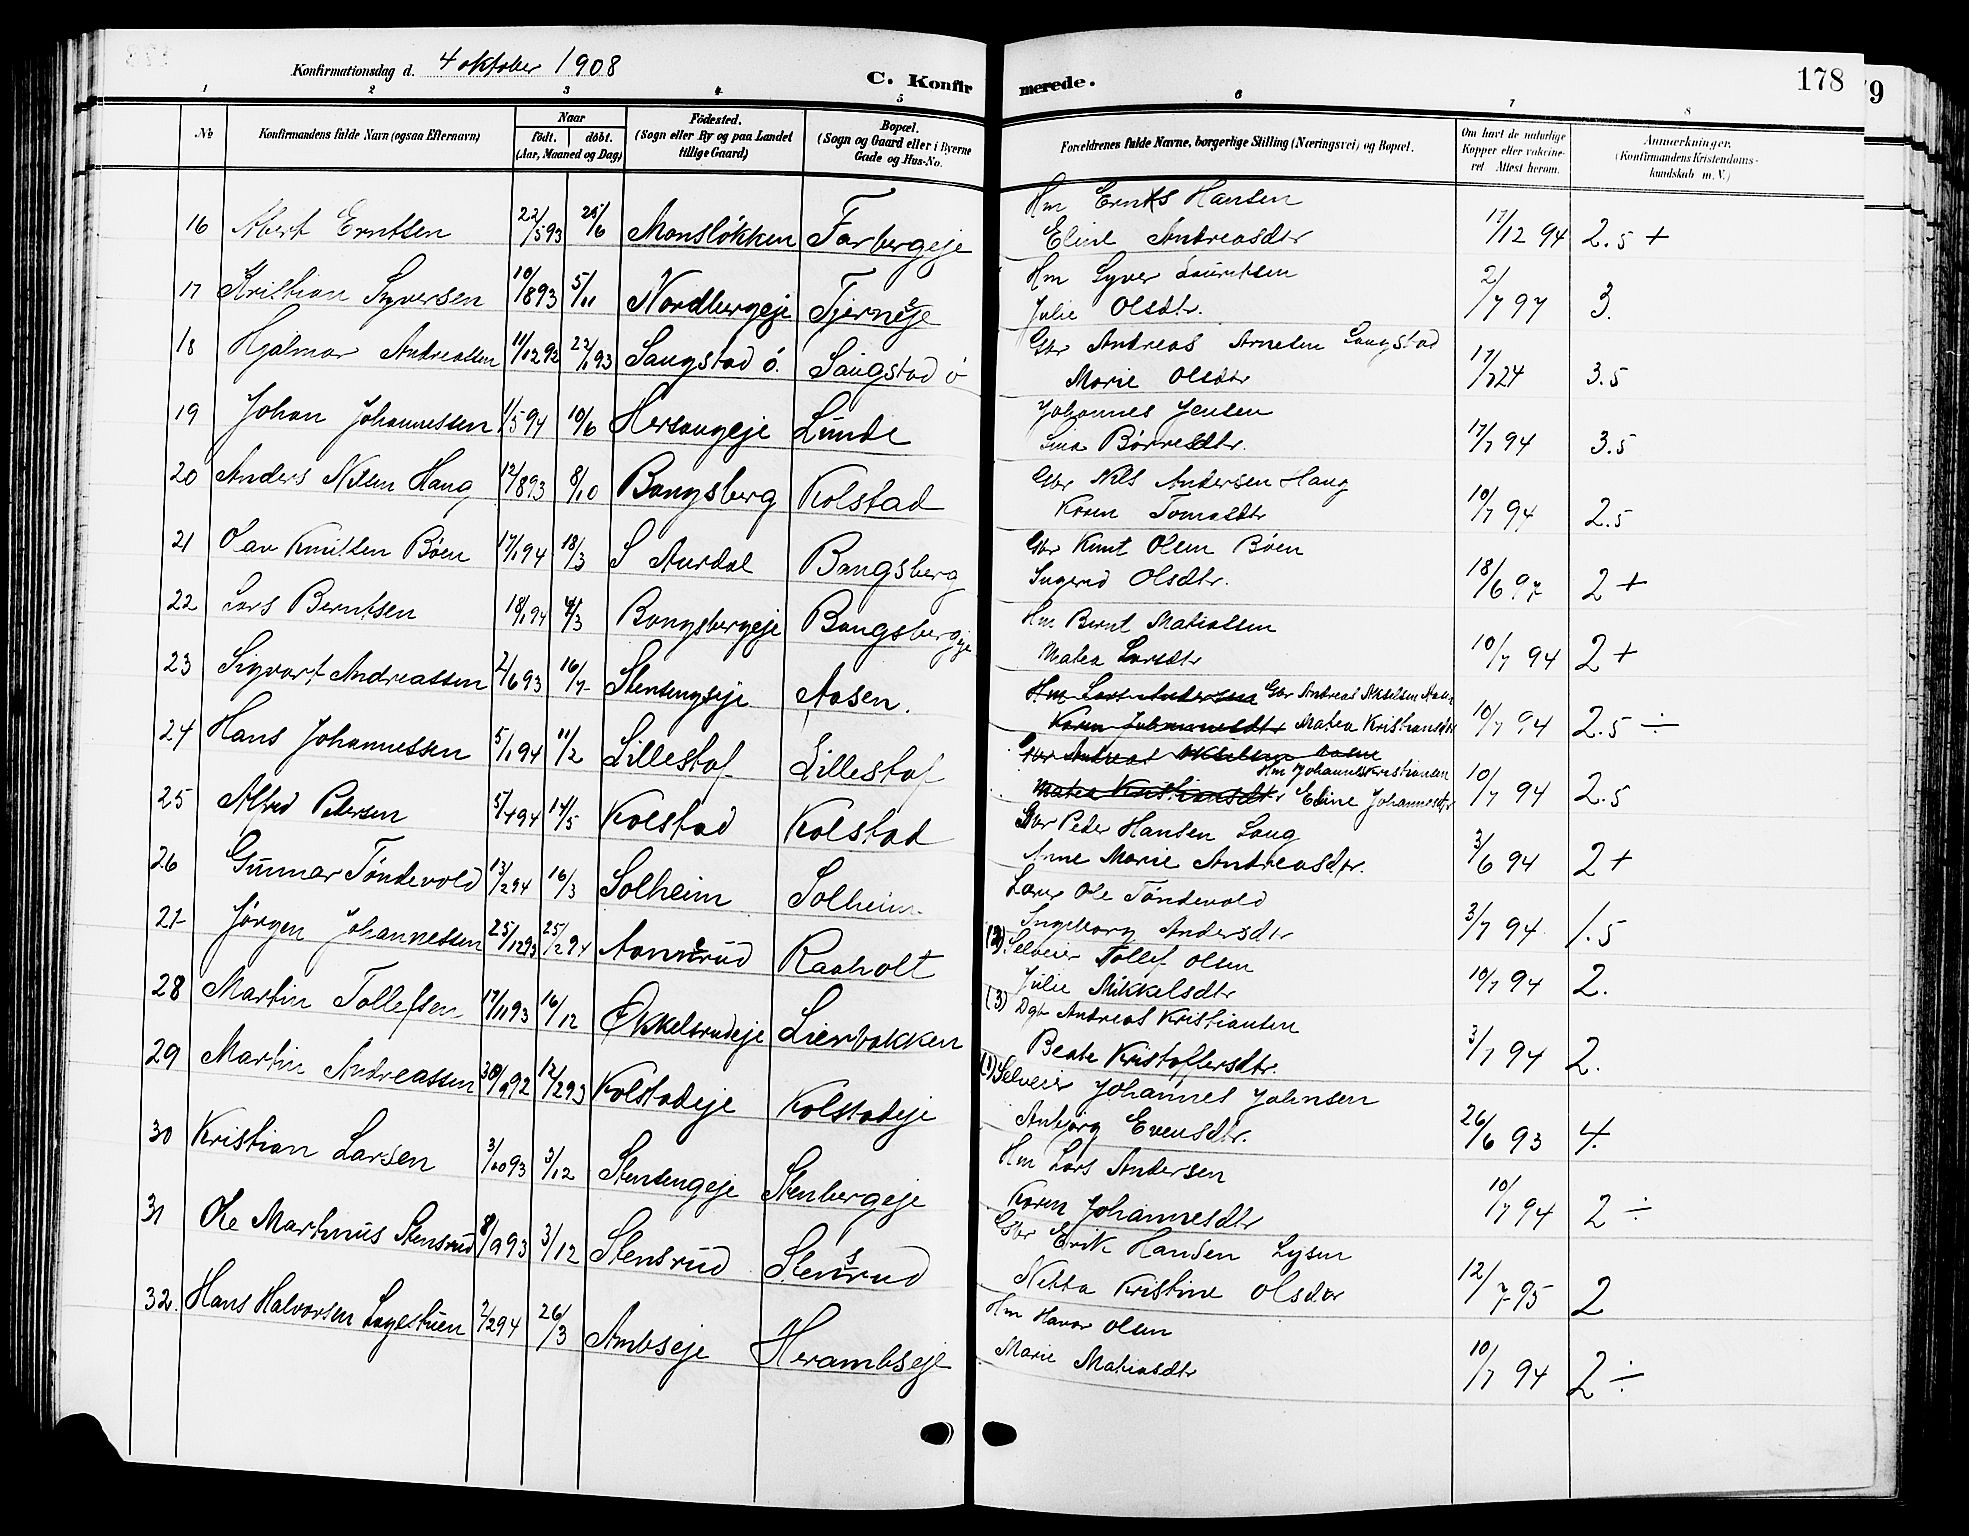 Konfirmationsdag d. 4 oktober 1908
C. Konfirmerede.
178
1 2 3 4 5 6 7 8
№ Konfirmandens fulde Navn (ogsaa Efternavn) Naar født. døbt. (Aar, Maaned og Dag) Fødested. (Sogn eller By og paa Landet tillige Gaard) Bopæl. (Sogn og Gaard eller i Byerne Gade og Hus-No. Forældrenes fulde Navne, borgerlige Stilling (Næringsvei) og Bopæl. Om havt de naturlige Kopper eller vakcineret Attest herom. Anmerkninger, (Konfirmandens Kristendomskundskab m. V.)
Hm Ernts Hansen
16 Abert Erntsen 22/5 93 25/6 Monsløkken Farbergeje Eline Andreasdtr 17/12 94 2.5 +
Hm Syver Lauritsen
17 Kristian Syversen 10/8 93 5/11 Nordbergeje Tjerneje Julie Olsdtr. 2/7 97 3.
Gbr Andreas Arnesen Saugstad
18 Hjalmar Andreassen 11/12 92 22/1 93 Saugstad ø. Saugstad ø Marie Olsdtr 17/7 24 3.5
Johannes Jensen
19 Johan Johannessen 1/5 94 10/6 Hersaugeje Lunde Lina Børresdtr. 17/7 94 3.5
Gbr Nils Andersen Haug
20 Anders Nilsen Haug 12/8 93 8/10 Bangsberg Kolstad Karen Tomasdtr 10/7 94 2.5
Gbr Knut Olsen Bøen
21 Olav Knutsen Bøen 17/1 94 18/3 S Aurdal Bangsberg Ingerid Olsdtr. 18/6 97 2 +
Hm Bernt Matiassen
22 Lars Berntsen 18/1 94 4/3 Bangsbergeje Bangsbergeje Matea Larsdtr 10/7 94 2 +
Hm Lars Andersen Gbr Andreas Akselsen
23 Sigvart Andreassen 2/6 93 16/7 Stensengseje Aasen. Karen Johannesdtr Matea Kristiansdtr 10/7 94 2.5 ÷
Gbr Andreas Akselsen Aasen
Hm Johannes Kristiansen
24 Hans Johannessen 5/1 94 11/2 Lillestaf Lillestaf Matea Kristiansdtr Eline Johannesdtr 10/7 94 2.5
Gbr Peder Hansen Laug
25 Alfred Pedersen 5/4 94 14/5 Kolstad Kolstad Anne Marie Andreasdtr. 3/6 94 2 +
Lærer Ole Tøndevold
26 Gunnar Tøndevold 13/2 94 16/3 Solheim Solheim Ingeborg Andersdtr 3/7 94 1.5
(2) Selveier Tollef Olsen
27 Jørgen Johannessen 25/12 93 25/2 94 Aannerud Raaholt Julie Mikkelsdtr 10/7 94 2.
(3) Dgb Andreas Kristiansen
28 Martin Tollefsen 17/11 93 16/12 Økkelsrudeje Lierbakken Beate Kristoffersdtr. 3/7 94 2.
(1) Selveier Johannes Johnsen
29 Martin Andreassen 30/9 92 12/2 93 Kolstadeje Kolstadeje Anbjørg Evensdtr. 26/6 93 4.
Hm Lars Andersen
30 Kristian Larsen 3/10 93 3/12 Stensengeje Stenbergeje Karen Johannesdtr 10/7 94 2 ÷
Gbr Erik Hansen Lysen
31 Ole Martinus Stensrud 8/9 93 3/12 Stensrud Stensrud Netta Kristine Olsdtr 12/7 95 2
Hm Havor Olsen
32. Hans Halvorsen Lagestuen 2/2 94 26/3 Ambseje Herambseje Marie Matiasdtr 10/7 94 2 ÷